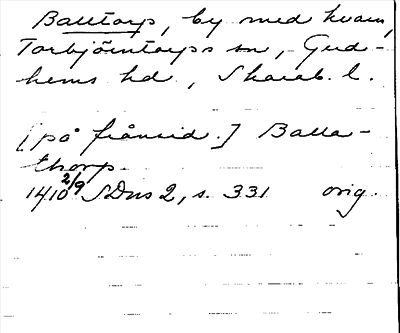 Balltorp, by med kvarn,
Torbjörntorps sn, Gud-
hems hd, Skarab. l.
[på frånsid.] Balla-
thorp
1410 2/9 SDns 2, s. 331 orig.